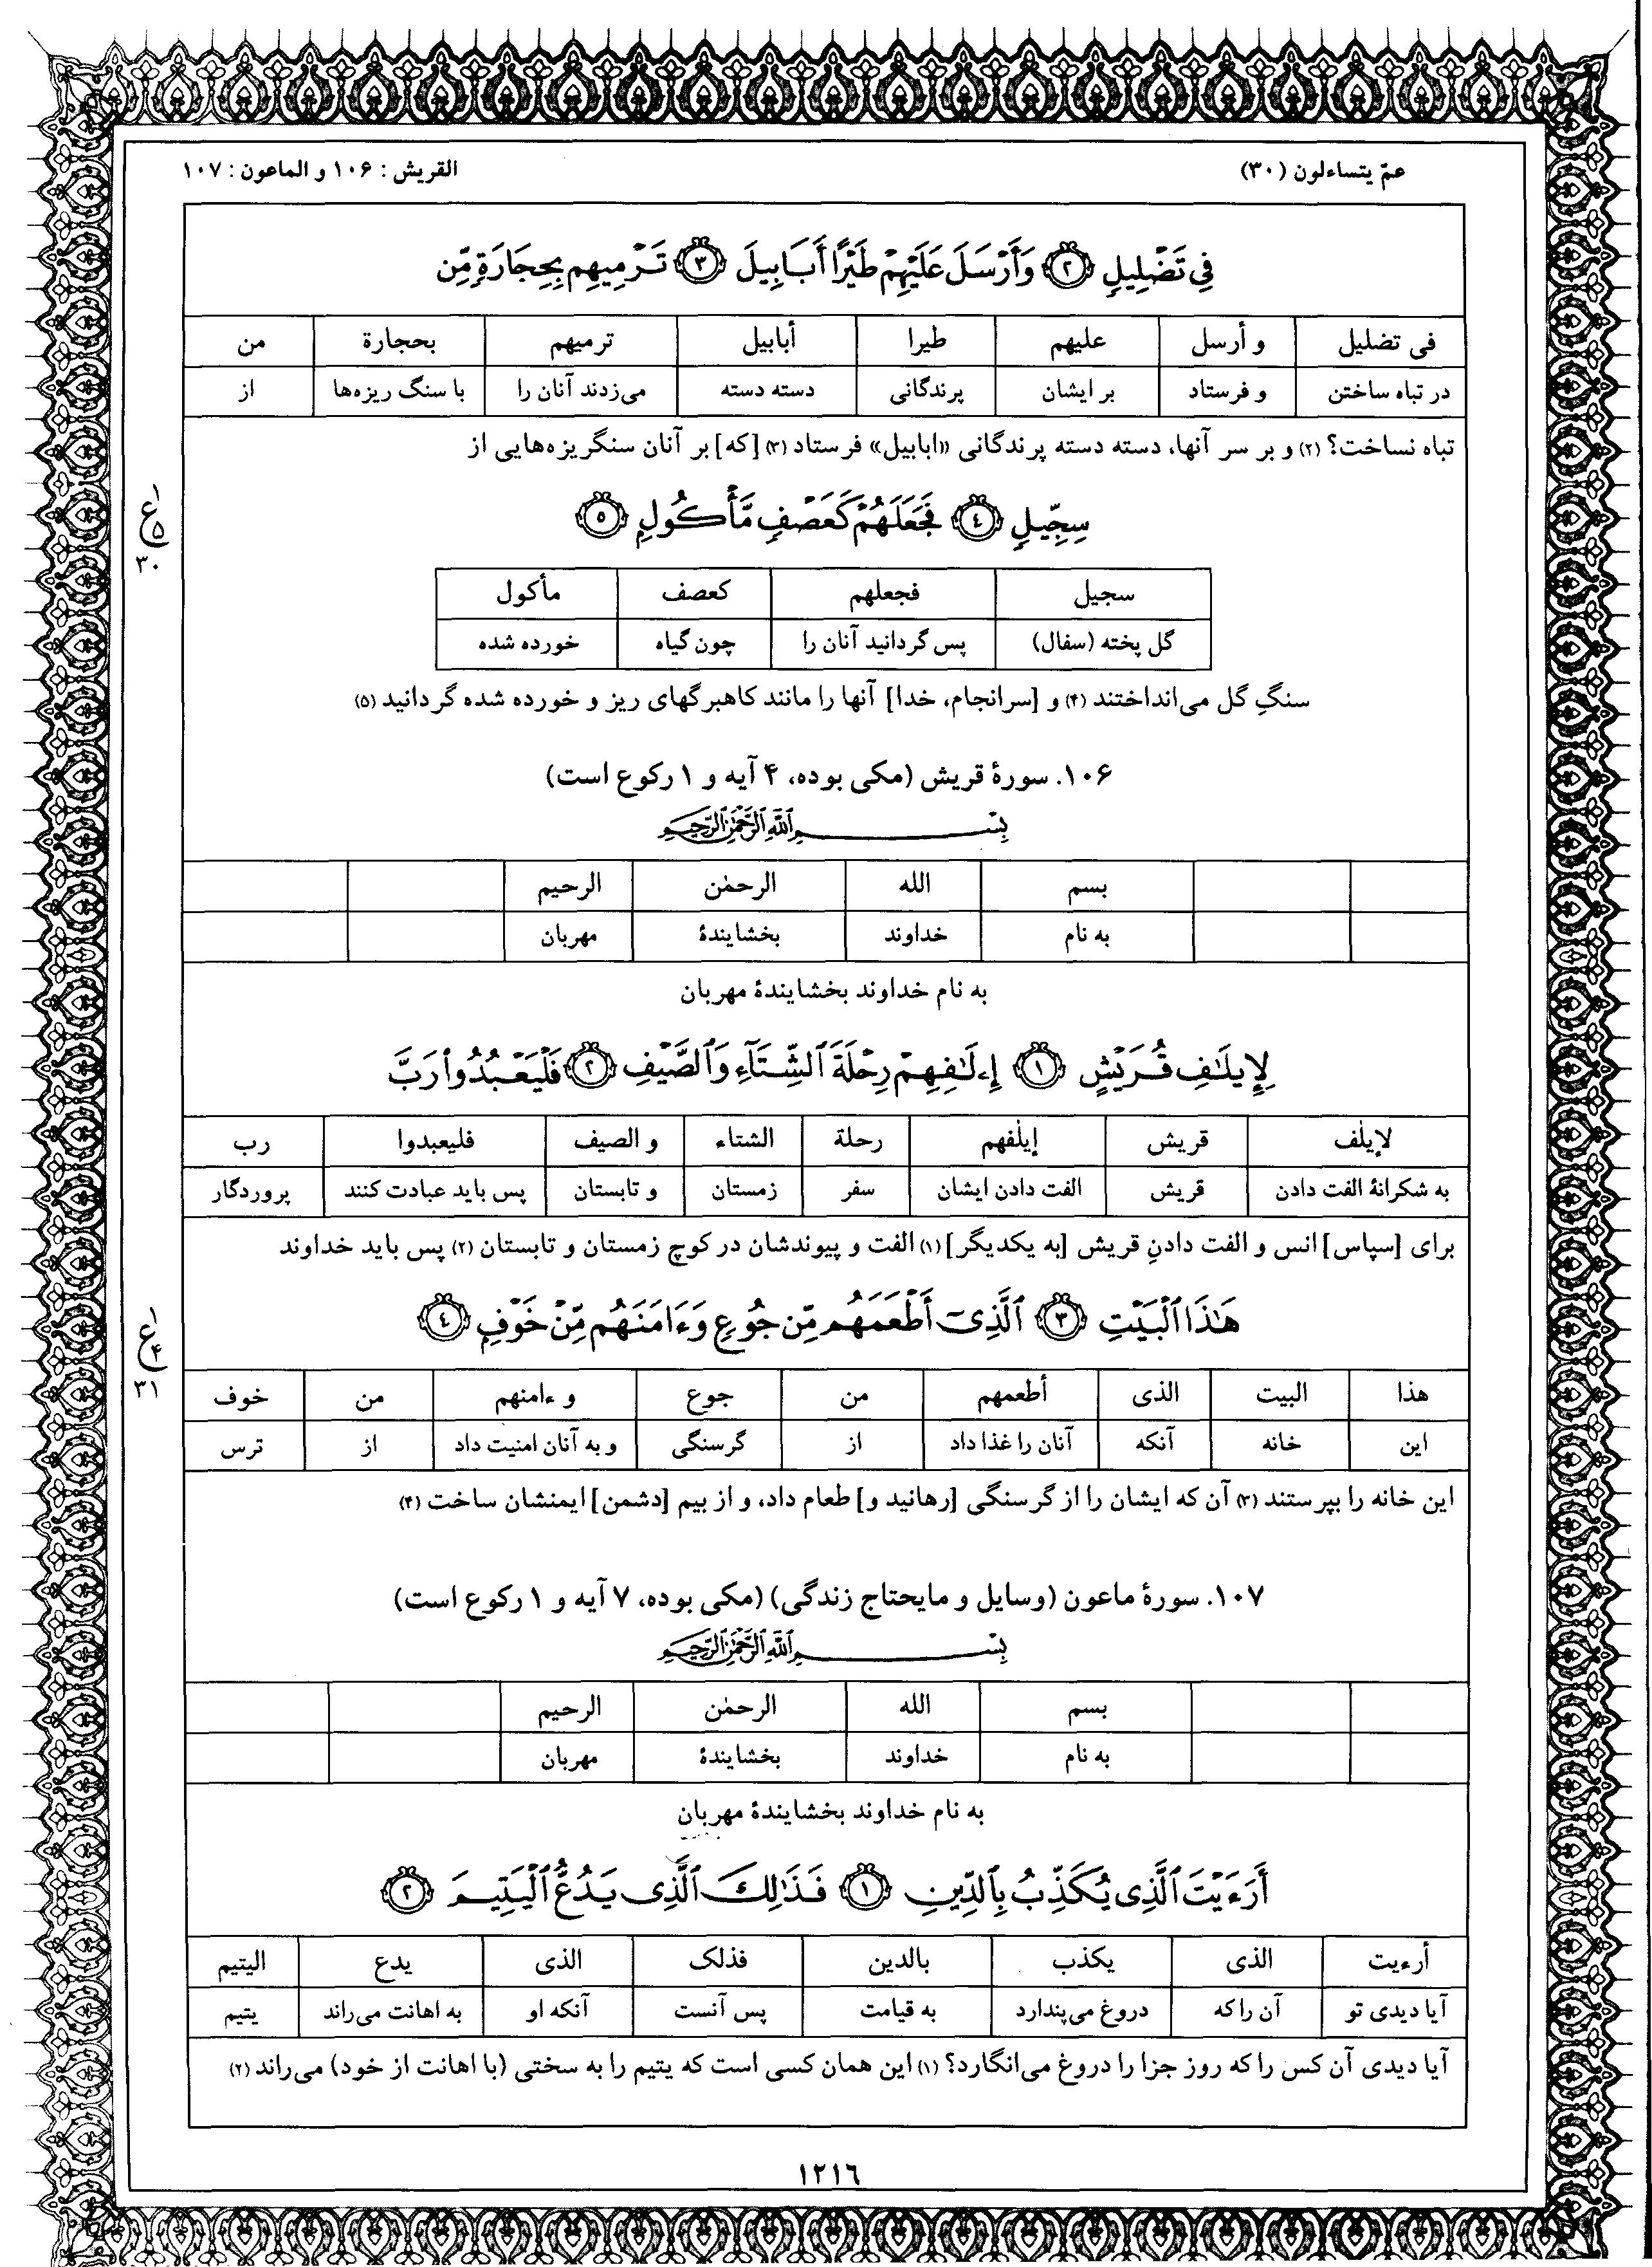 عمّ يتساءلون (۳۰)
القريش : ۱۰۶ و الماعون : ۱۰۷
فِي تَضْلِيلٍ ٢ وَأَرْسَلَ عَلَيْهِمْ طَيْرًا أَبَابِيلَ ٣ تَرْمِيهِم بِحِجَارَةٍ مِّن
فى تضليل | و أرسل | عليهم | طيرا | أبابيل | ترميهم | بحجارة | من
در تباه ساختن | و فرستاد | بر ایشان | پرندگانی | دسته دسته | می‌زدند آنان را | با سنگ ریزه‌ها | از
تباه نساخت؟ (۲) و بر سر آنها، دسته دسته پرندگانی «ابابیل» فرستاد (۳) [که] بر آنان سنگریزه‌هایی از
سِجِّيلٍ ٤ فَجَعَلَهُمْ كَعَصْفٍ مَّأْكُولٍ ٥
۱
ع ۵
۳۰
سجيل | فجعلهم | كعصف | مأكول
گل پخته (سفال) | پس گردانید آنان را | چون گیاه | خورده شده
سنگِ گل می‌انداختند (۴) و [سرانجام، خدا] آنها را مانند کاهبرگهای ریز و خورده شده گردانید (۵)
۱۰۶. سورهٔ قریش (مکی بوده، ۴ آیه و ۱ رکوع است)
بِسْمِ اللَّهِ الرَّحْمَٰنِ الرَّحِيمِ
بسم | الله | الرحمٰن | الرحيم
به نام | خداوند | بخشایندهٔ | مهربان
به نام خداوند بخشایندهٔ مهربان
لِإِيلَٰفِ قُرَيْشٍ ١ إِۦلَٰفِهِمْ رِحْلَةَ ٱلشِّتَآءِ وَٱلصَّيْفِ ٢ فَلْيَعْبُدُوا۟ رَبَّ
لإيلٰف | قريش | إيلٰفهم | رحلة | الشتاء | و الصيف | فليعبدوا | رب
به شکرانهٔ الفت دادن | قریش | الفت دادن ایشان | سفر | زمستان | و تابستان | پس باید عبادت کنند | پروردگار
برای [سپاس] انس و الفت دادنِ قریش [به یکدیگر] (۱) الفت و پیوندشان در کوچ زمستان و تابستان (۲) پس باید خداوند
هَٰذَا ٱلْبَيْتِ ٣ ٱلَّذِىٓ أَطْعَمَهُم مِّن جُوعٍ وَءَامَنَهُم مِّنْ خَوْفٍ ٤
۱
ع ۴
۳۱
هذا | البيت | الذى | أطعمهم | من | جوع | و ءامنهم | من | خوف
این | خانه | آنکه | آنان را غذا داد | از | گرسنگی | و به آنان امنیت داد | از | ترس
این خانه را بپرستند (۳) آن که ایشان را از گرسنگی [رهانید و] طعام داد، و از بیم [دشمن] ایمنشان ساخت (۴)
۱۰۷. سورهٔ ماعون (وسایل و مایحتاج زندگی) (مکی بوده، ۷ آیه و ۱ رکوع است)
بِسْمِ اللَّهِ الرَّحْمَٰنِ الرَّحِيمِ
بسم | الله | الرحمٰن | الرحيم
به نام | خداوند | بخشایندهٔ | مهربان
به نام خداوند بخشایندهٔ مهربان
أَرَءَيْتَ ٱلَّذِى يُكَذِّبُ بِٱلدِّينِ ١ فَذَٰلِكَ ٱلَّذِى يَدُعُّ ٱلْيَتِيمَ ٢
أرءيت | الذى | يكذب | بالدين | فذلك | الذى | يدع | اليتيم
آیا دیدی تو | آن را که | دروغ می‌پندارد | به قیامت | پس آنست | آنکه او | به اهانت می‌راند | یتیم
آیا دیدی آن کس را که روز جزا را دروغ می‌انگارد؟ (۱) این همان کسی است که یتیم را به سختی (با اهانت از خود) می‌راند (۲)
١٢١٦